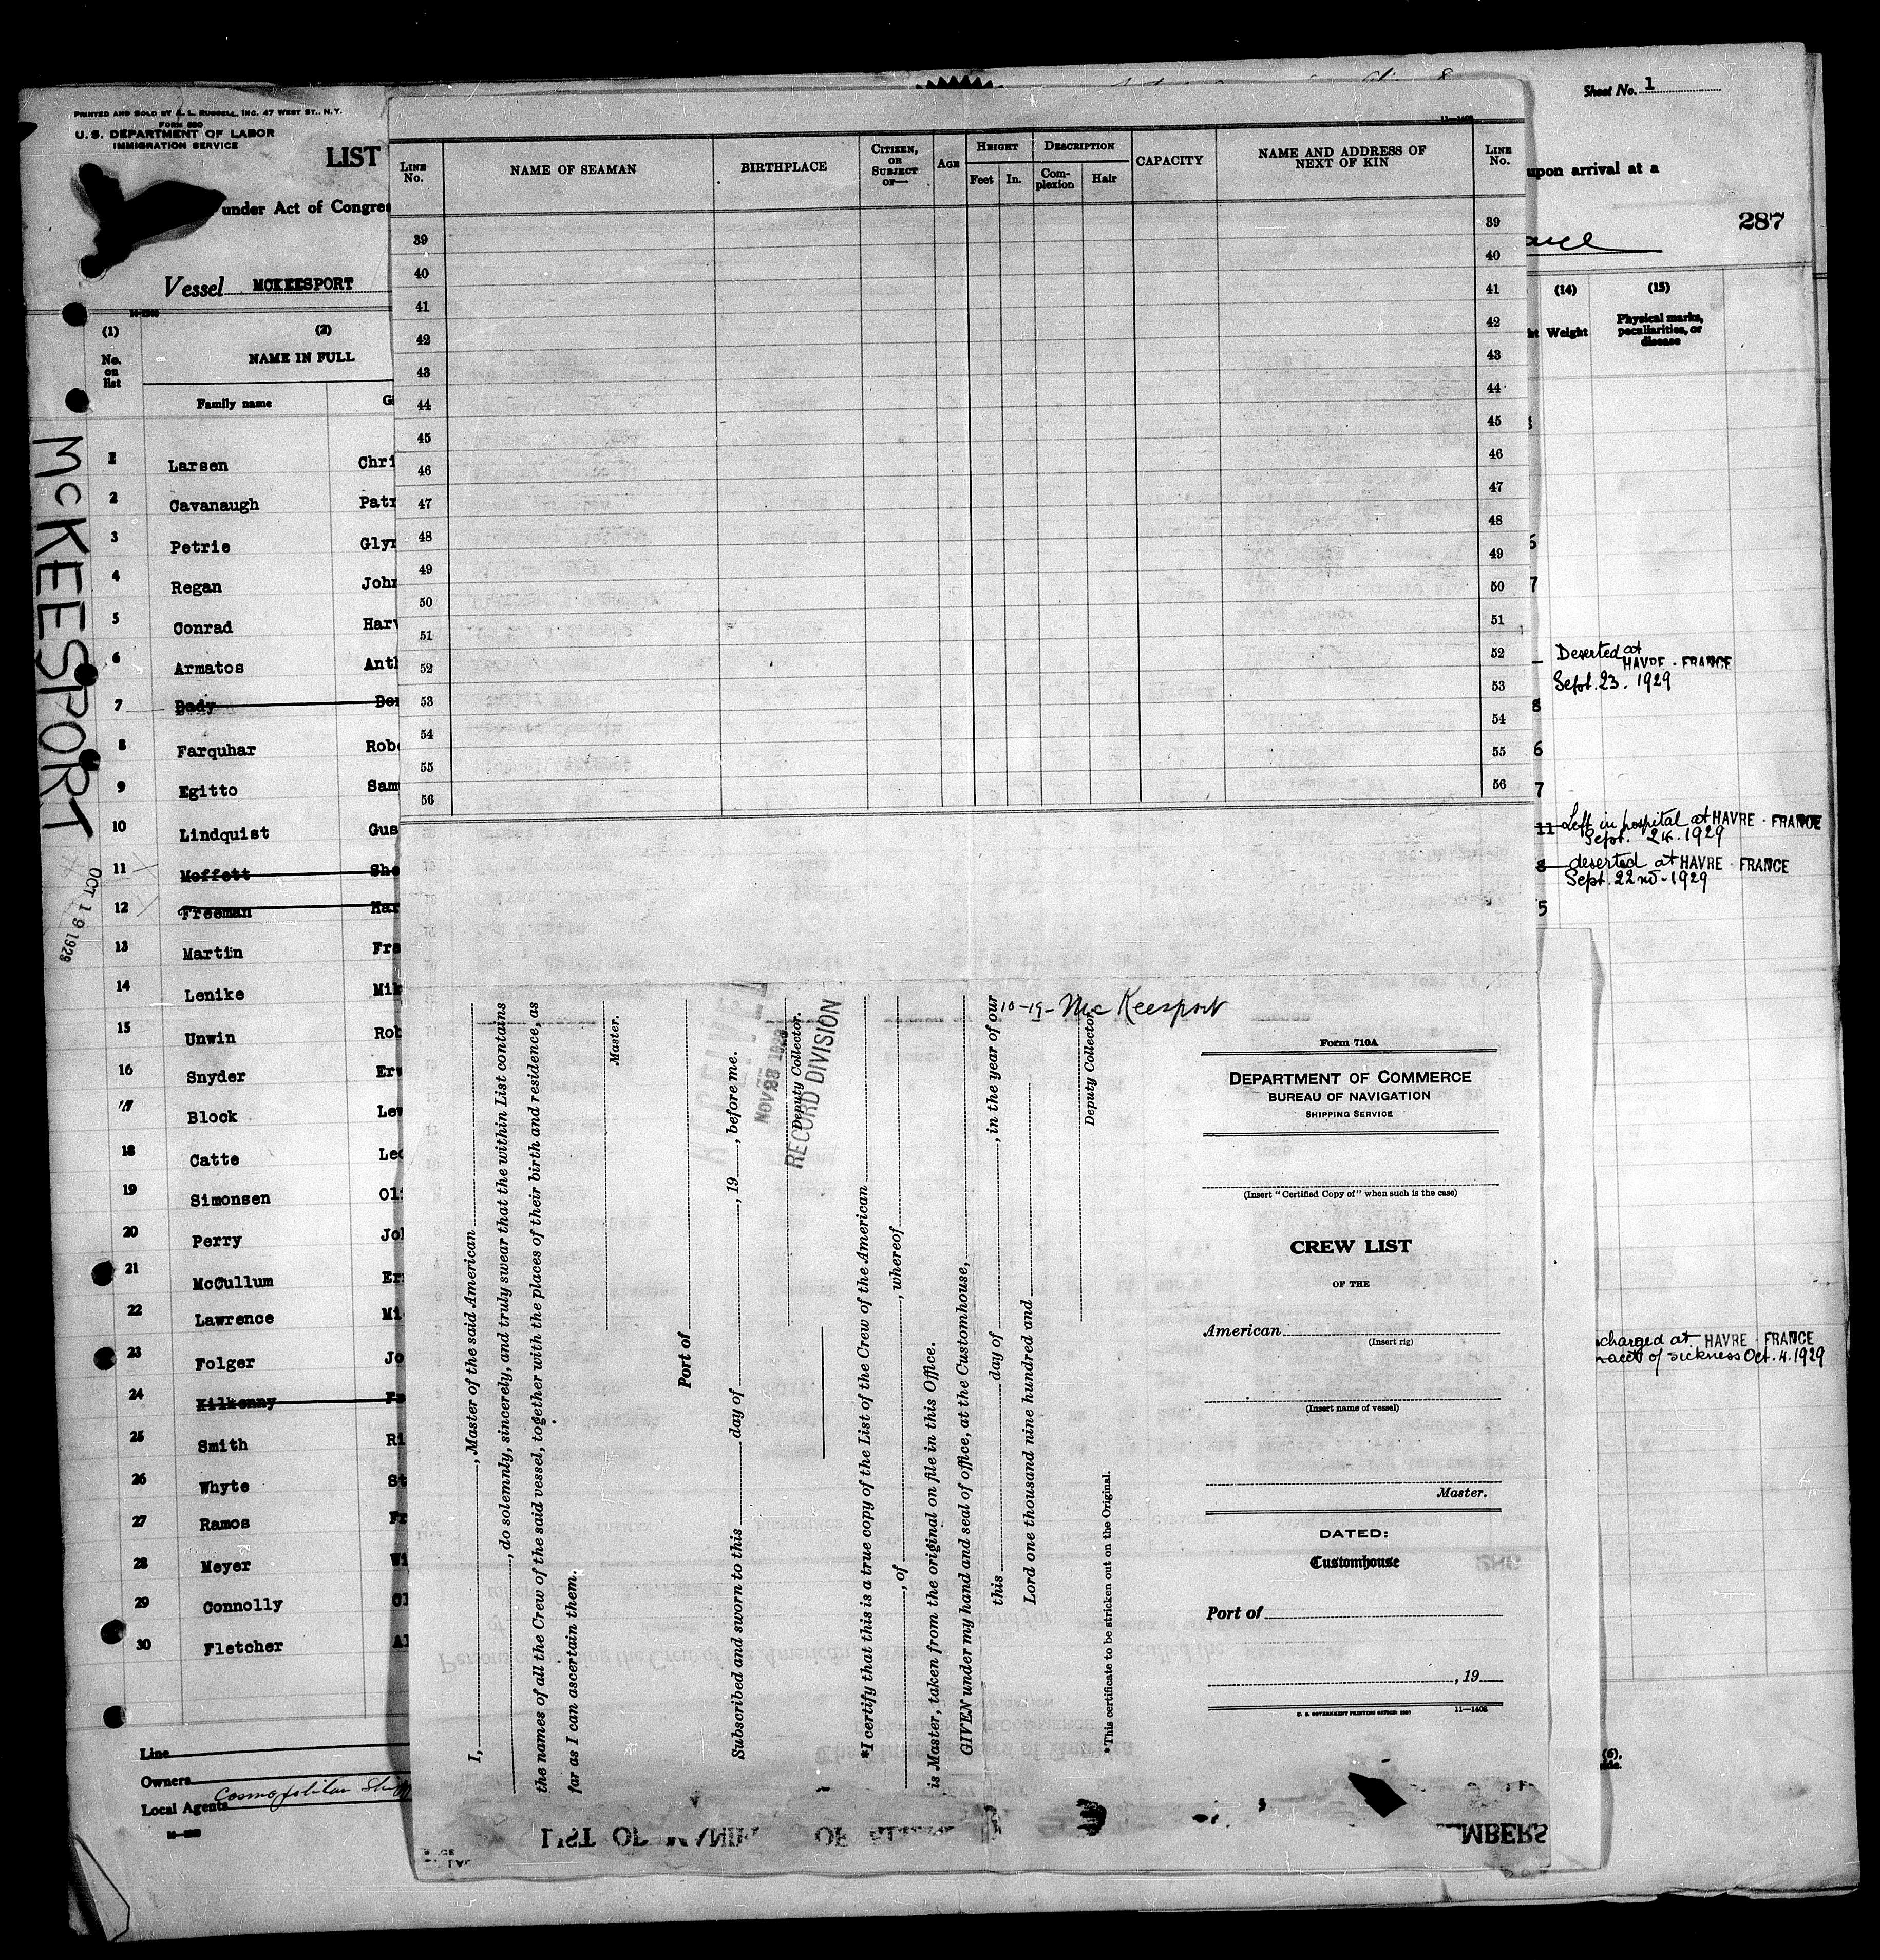 PRINTED AND SOLD BY A. L. RUSSELL, INC. 47 WEST ST., N.Y.
FORM 680
U. S. DEPARTMENT OF LABOR
IMMIGRATION SERVICE
LIST
under Act of Congres
Vessel MCKEESPORT
(1)
(2)
No. on list
NAME IN FULL
Family name
G
1 Larsen Chri
2 Cavanaugh Patr
3 Petrie Glyn
4 Regan John
5 Conrad Harv
6 Armatos Anth
7 Dody Don
8 Farquhar Robe
9 Egitto Sam
10 Lindquist Gus
11 Moffett She
12 Freeman Har
13 Martin Fra
14 Lenike Mik
15 Unwin Rob
16 Snyder Erw
17 Block Lew
18 Catte Leo
19 Simonsen Oli
20 Perry Joh
21 McCullum Ern
22 Lawrence Mi
23 Folger Jo
24 Kilkenny
25 Smith Ri
26 Whyte St
27 Ramos Fr
28 Meyer Wi
29 Connolly Cl
30 Fletcher Al
Line
Owners
Local Agents Cosmopolitan Shipp
McKEESPORT
OCT 19 1929
11—1408
LINE No.
NAME OF SEAMAN
BIRTHPLACE
CITIZEN, OR SUBJECT OF—
AGE
HEIGHT
Feet
In.
DESCRIPTION
Complexion
Hair
CAPACITY
NAME AND ADDRESS OF NEXT OF KIN
LINE No.
39 39
40 40
41 41
42 42
43 43
44 44
45 45
46 46
47 47
48 48
49 49
50 50
51 51
52 52
53 53
54 54
55 55
56 56
I, , Master of the said American
, do solemnly, sincerely, and truly swear that the within List contains
the names of all the Crew of the said vessel, together with the places of their birth and residence, as
far as I can ascertain them.
Master.
Port of
Subscribed and sworn to this day of , 19 , before me.
Deputy Collector.
NOV 23 1929
RECORD DIVISION
*I certify that this is a true copy of the List of the Crew of the American
, of , whereof
is Master, taken from the original on file in this Office.
GIVEN under my hand and seal of office, at the Customhouse,
this day of , in the year of our
Lord one thousand nine hundred and
Deputy Collector.
*This certificate to be stricken out on the Original.
10-19- McKeesport
Form 710A
DEPARTMENT OF COMMERCE
BUREAU OF NAVIGATION
SHIPPING SERVICE
(Insert "Certified Copy of" when such is the case)
CREW LIST
OF THE
American
(Insert rig)
(Insert name of vessel)
Master.
DATED:
Customhouse
Port of
, 19
U. S. GOVERNMENT PRINTING OFFICE:
11—1408
Sheet No. 1
upon arrival at a
287
(14)
(15)
Weight
Physical marks, peculiarities, or disease
6
7
Deserted at
HAVRE - FRANCE
Sept. 23. 1929
8
6
7
11 Left in hospital at HAVRE - FRANCE
Sept. 24. 1929
8 deserted at HAVRE - FRANCE
Sept. 22nd - 1929
5
charged at HAVRE - FRANCE
of sickness Oct. 4. 1929
LIST OF
OF
MBERS